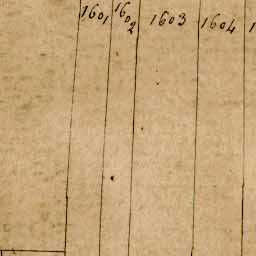 1601 1602 1603 1604